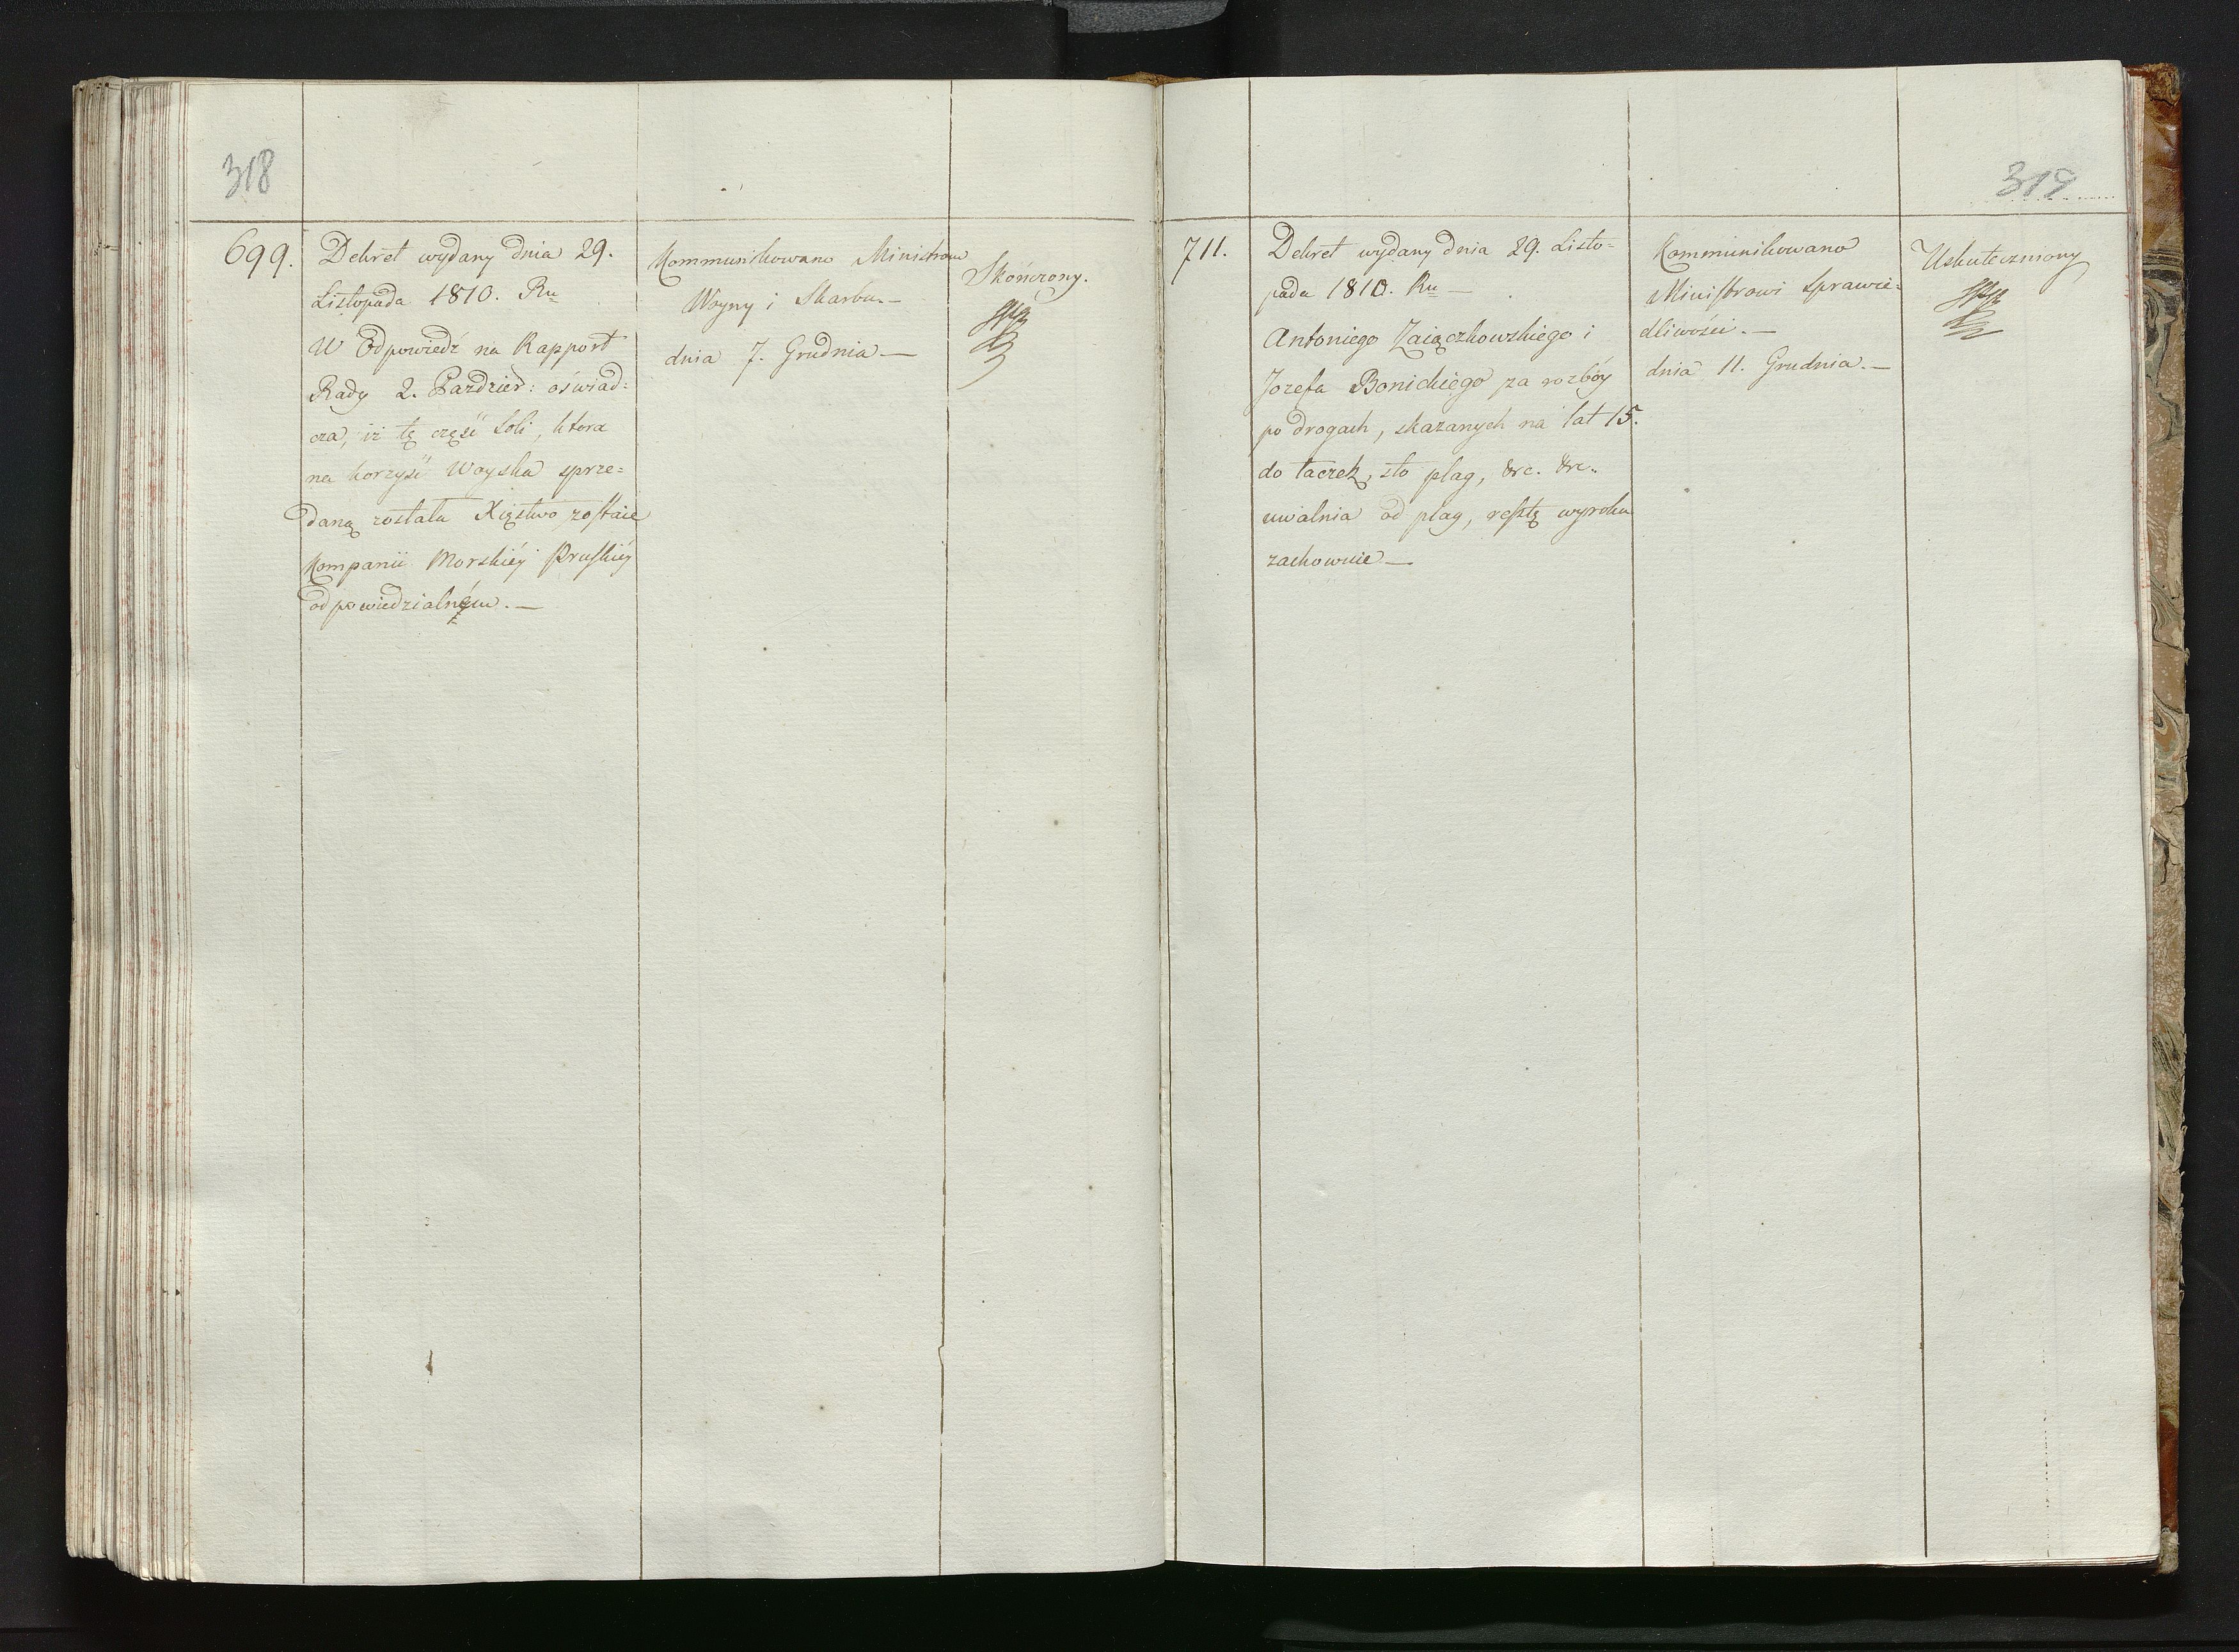 318
699.
Dekret wydany dnia 29.
Listopada 1810. Ru
W Odpowiedź na Rapport
Rady 2. Pazdzier: oświad=
cza, iż tę część Soli, ktora
na korzyść Woyska sprze=
daną została Xięstwo zostaie
Kompanii Morskiéy Pruskiéy
odpowiedzialném. —
Kommunikowano Ministrom
Woyny i Skarbu. —
dnia 7. Grudnia —
Skończony.
319
711.
Dekret wydany dnia 29. Listo=
pada 1810. Ru —
Antoniego Zaiączkowskiego i
Jozefa Bonickiego za rozbóy
po drogach, skazanych na lat 15.
do taczek, sto plag, &c. &c.
uwalnia od plag, resztę wyroku
zachowuie —
Kommunikowano
Ministrowi Sprawie=
dliwości. —
dnia 11. Grudnia. —
Uskuteczniony